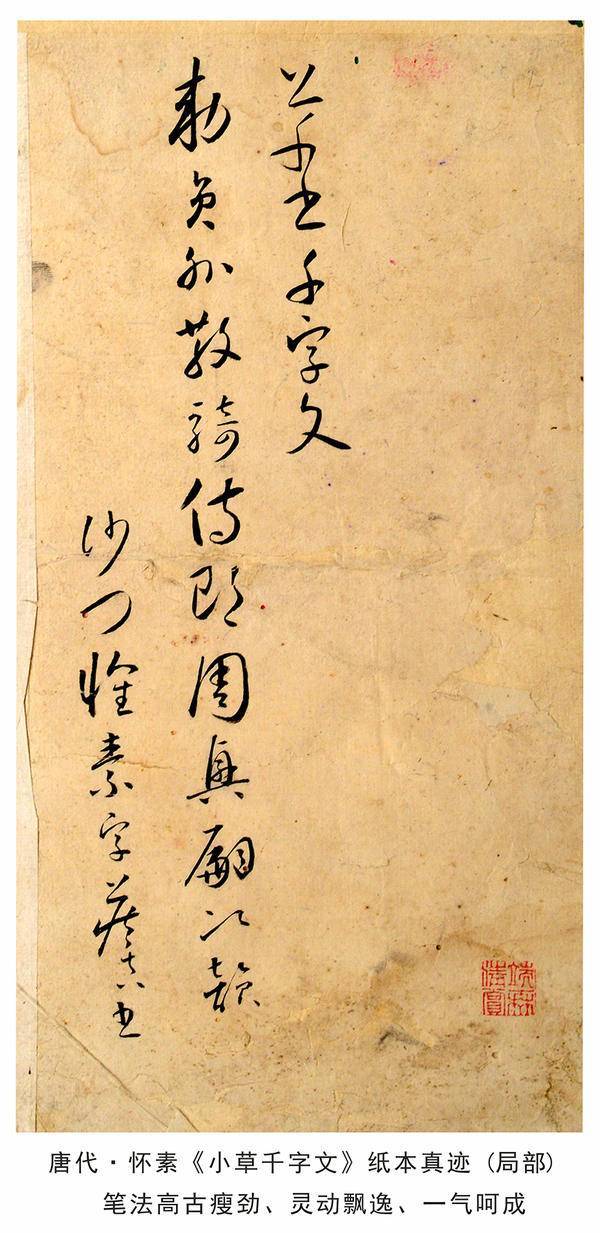 草書千字文
勅員外散騎侍郎周興嗣次韻
沙門懷素字藏真書
唐代·怀素《小草千字文》纸本真迹 (局部)
笔法高古瘦劲、灵动飘逸、一气呵成